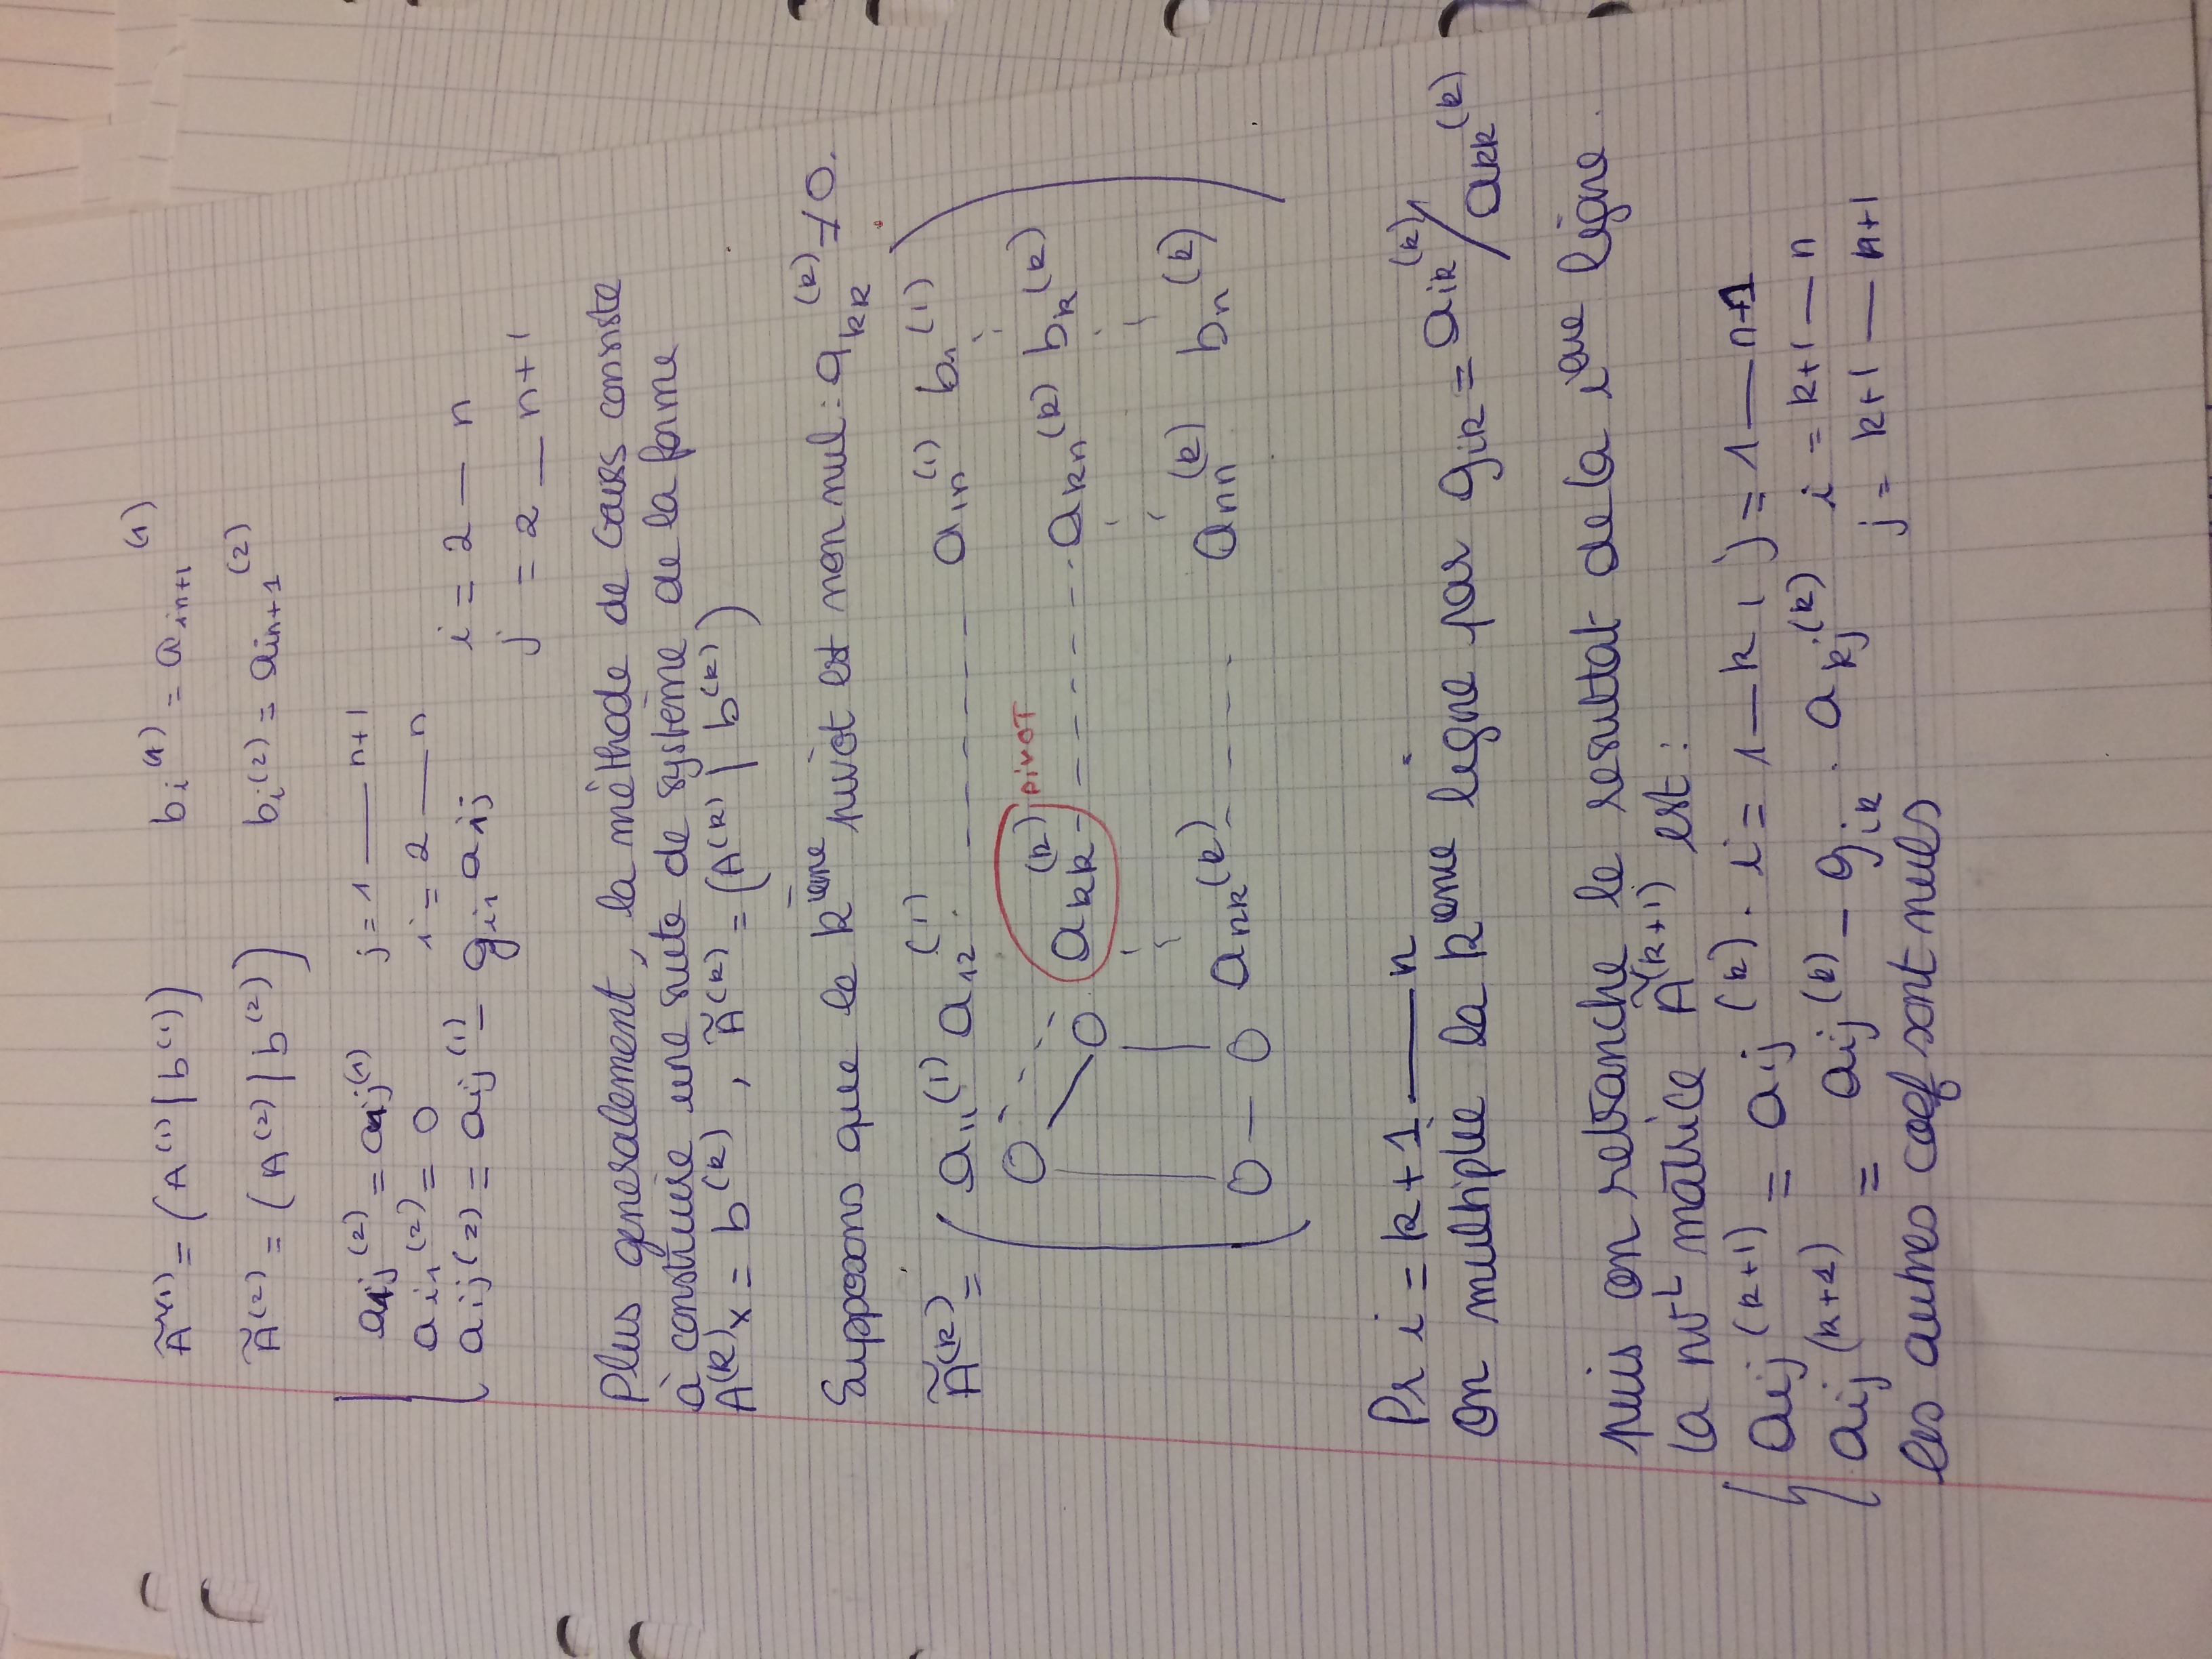 Ã⁽¹⁾ = (A⁽¹⁾ | b⁽¹⁾)    bᵢ⁽¹⁾ = aᵢₙ₊₁⁽¹⁾
Ã⁽²⁾ = (A⁽²⁾ | b⁽²⁾)    bᵢ⁽²⁾ = aᵢₙ₊₁⁽²⁾
a₁ⱼ⁽²⁾ = a₁ⱼ⁽¹⁾    j = 1 — n+1
aᵢ₁⁽²⁾ = 0    i = 2 — n
aᵢⱼ(2) = aᵢⱼ⁽¹⁾ - gᵢ₁ a₁ⱼ    i = 2 — n
j = 2 — n+1
Plus generalement, la méthode de Gauss consiste
à construire une suite de système de la forme
A⁽ᵏ⁾x = b⁽ᵏ⁾, Ã⁽ᵏ⁾ = (A⁽ᵏ⁾ | b⁽ᵏ⁾)
Supposons que le kième pivot est non nul : aₖₖ⁽ᵏ⁾ ≠ 0.
Ã⁽ᵏ⁾ = ( a₁₁⁽¹⁾ a₁₂⁽¹⁾ ------ a₁ₙ⁽¹⁾ b₁⁽¹⁾
0 0 aₖₖ⁽ᵏ⁾ pivot ------ aₖₙ⁽ᵏ⁾ bₖ⁽ᵏ⁾
0 — 0 aₙₖ⁽ᵏ⁾ ---- aₙₙ⁽ᵏ⁾ bₙ⁽ᵏ⁾ )
Pr i = k+1 — n
on multiplie la kème ligne par gᵢₖ = aᵢₖ⁽ᵏ⁾/aₖₖ⁽ᵏ⁾
puis on retranche le resultat de la ième ligne.
la nvL matrice Ã⁽ᵏ⁺¹⁾ est :
aᵢⱼ⁽ᵏ⁺¹⁾ = aᵢⱼ⁽ᵏ⁾. i = 1 — k, j = 1 — n+1
aᵢⱼ⁽ᵏ⁺¹⁾ = aᵢⱼ⁽ᵏ⁾ - gᵢₖ · aₖⱼ⁽ᵏ⁾    i = k+1 — n
j = k+1 — n+1
les autres coef sont nuls